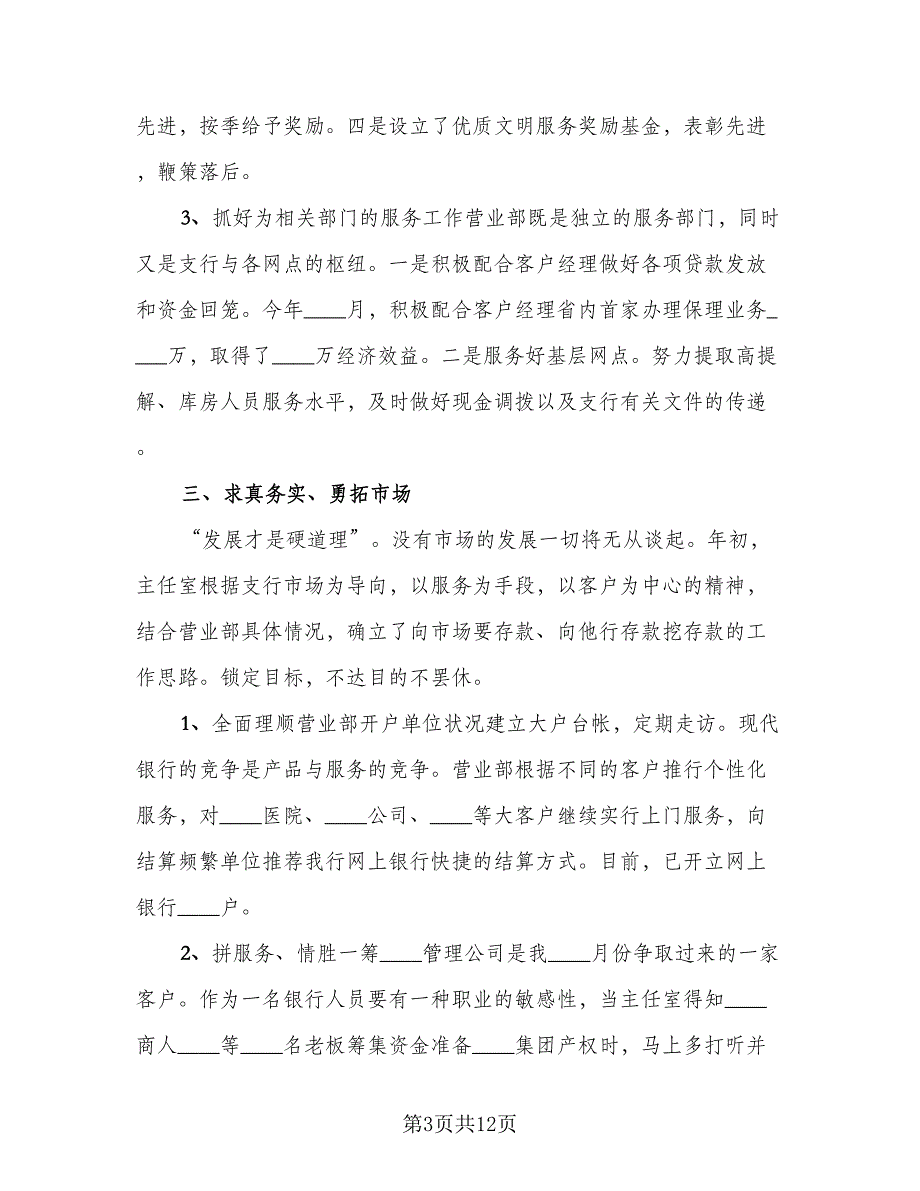 先进，按季给予奖励。四是设立了优质文明服务奖励基金，表彰先进
，鞭策落后。
3、抓好为相关部门的服务工作营业部既是独立的服务部门，同时
又是支行与各网点的枢纽。一是积极配合客户经理做好各项贷款发放
和资金回笼。今年____月，积极配合客户经理省内首家办理保理业务_
___万，取得了____万经济效益。二是服务好基层网点。努力提取高提
解、库房人员服务水平，及时做好现金调拨以及支行有关文件的传递
。
三、求真务实、勇拓市场
“发展才是硬道理”。没有市场的发展一切将无从谈起。年初，
主任室根据支行市场为导向，以服务为手段，以客户为中心的精神，
结合营业部具体情况，确立了向市场要存款、向他行存款挖存款的工
作思路。锁定目标，不达目的不罢休。
1、全面理顺营业部开户单位状况建立大户台帐，定期走访。现代
银行的竞争是产品与服务的竞争。营业部根据不同的客户推行个性化
服务，对____医院、____公司、____等大客户继续实行上门服务，向
结算频繁单位推荐我行网上银行快捷的结算方式。目前，已开立网上
银行____户。
2、拼服务、情胜一筹____管理公司是我____月份争取过来的一家
客户。作为一名银行人员要有一种职业的敏感性，当主任室得知____
商人____等____名老板筹集资金准备____集团产权时，马上多打听并
第3页共12页